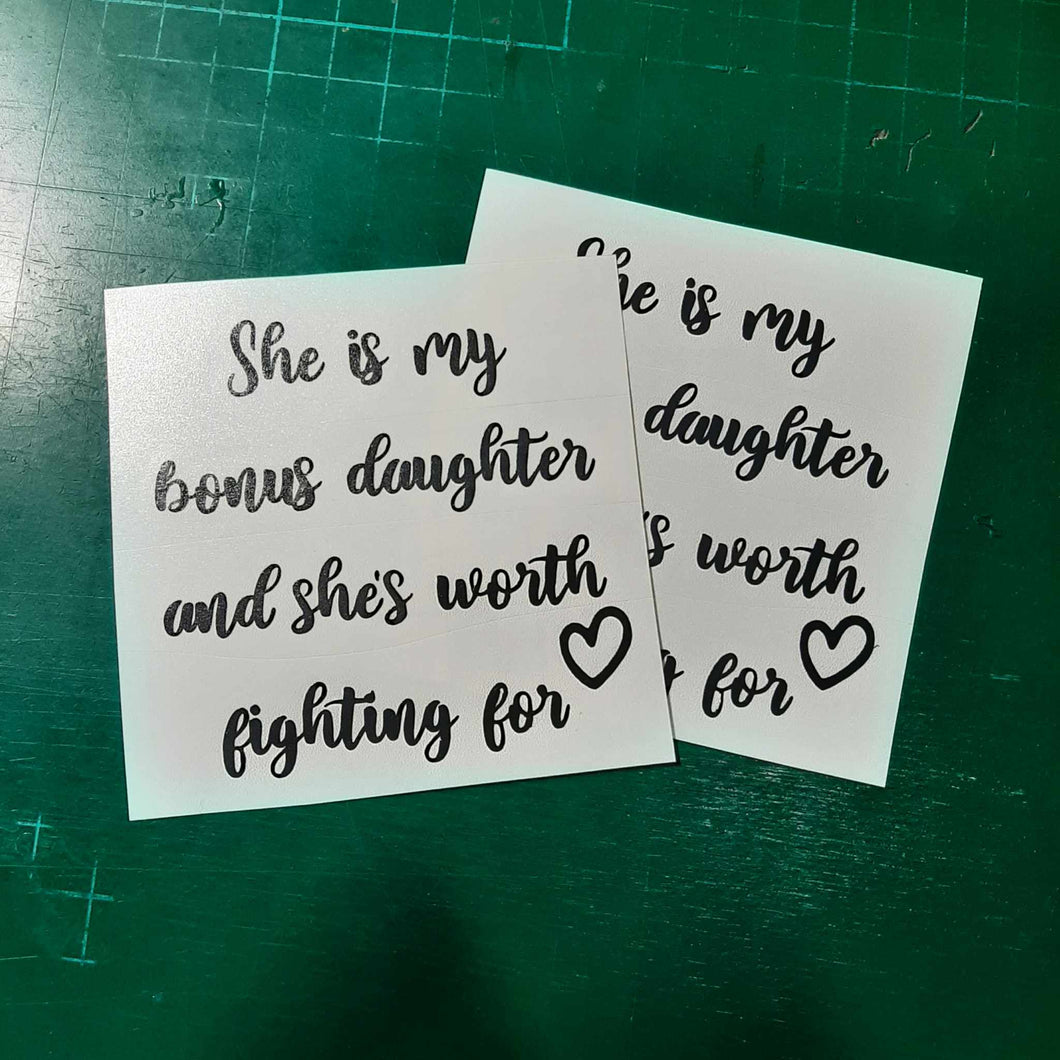 She is my
bonus daughter
and she's worth
fighting for
She is my
daughter
worth
for